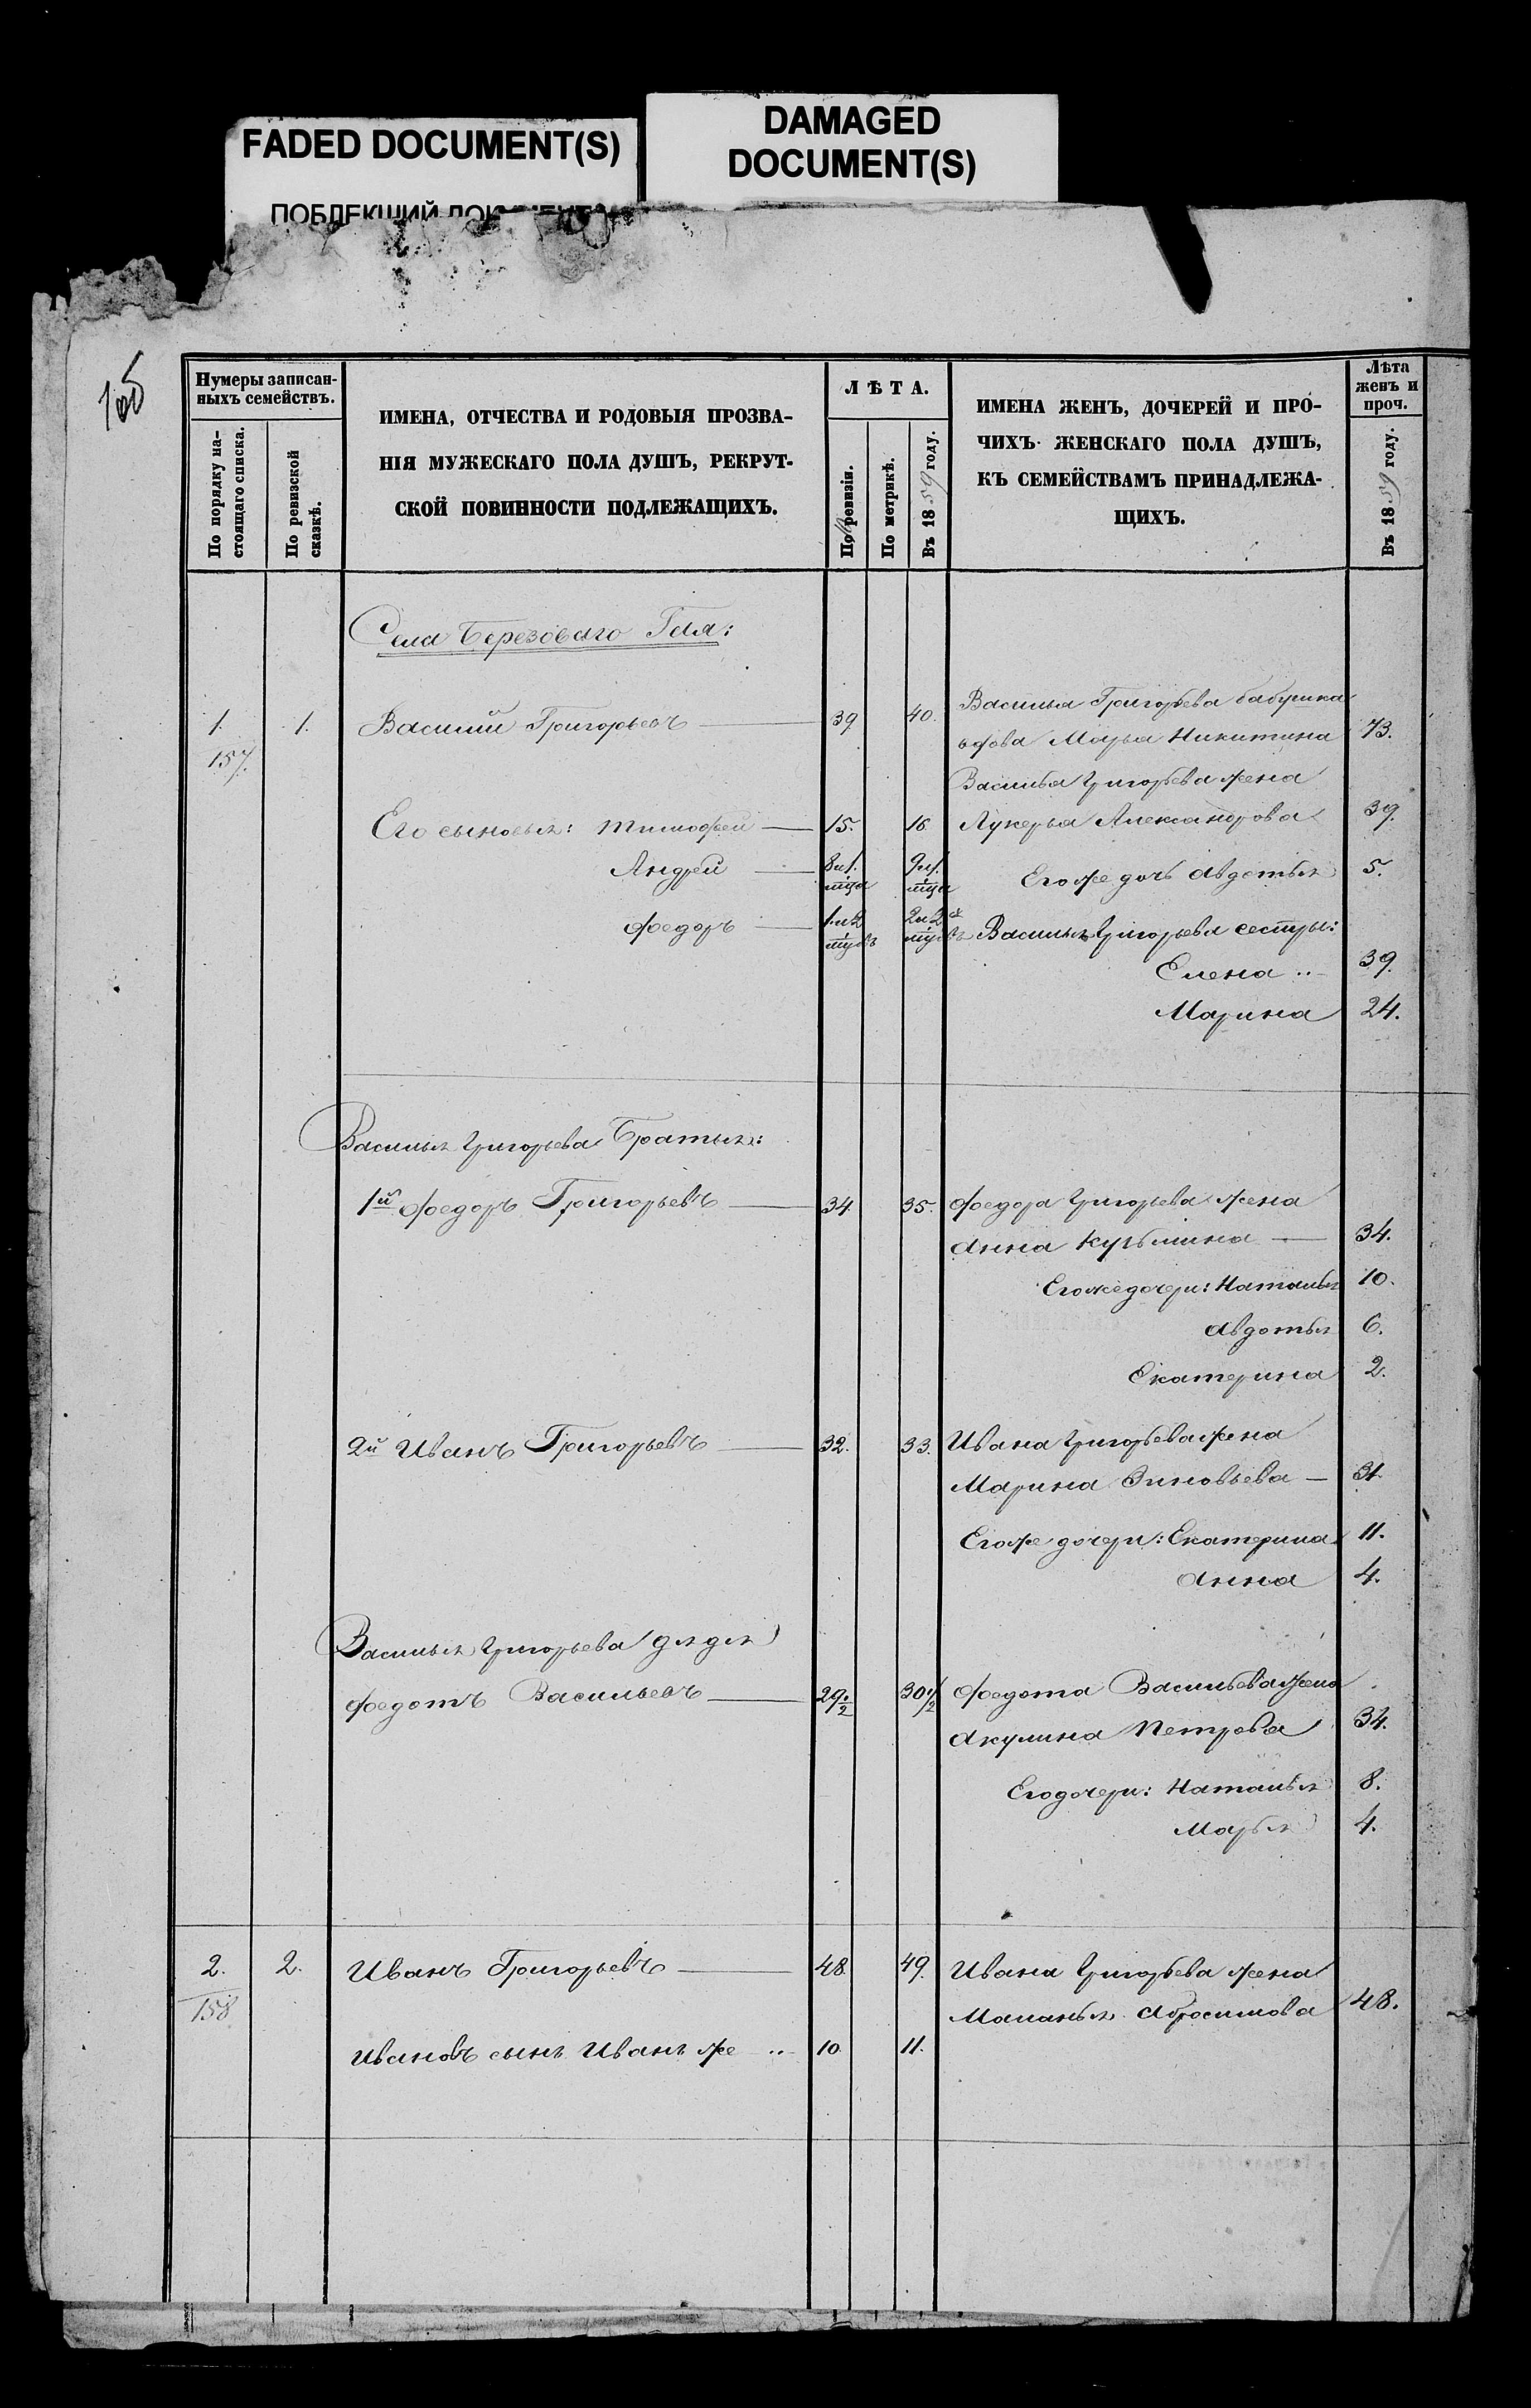 FADED DOCUMENT(S)
DAMAGED
DOCUMENT(S)
ПОБЛЕКШИЙ
105
Нумеры записан-
ныхъ семействъ.
По порядку на-
стоящаго списка.
По ревизской
сказкѣ.
ИМЕНА, ОТЧЕСТВА И РОДОВЫЯ ПРОЗВА-
НІЯ МУЖЕСКАГО ПОЛА ДУШЪ, РЕКРУТ-
СКОЙ ПОВИННОСТИ ПОДЛЕЖАЩИХЪ.
ЛѢТА.
По ревизіи.
По метрикѣ.
Въ 1859 году.
ИМЕНА ЖЕНЪ, ДОЧЕРЕЙ И ПРО-
ЧИХЪ ЖЕНСКАГО ПОЛА ДУШЪ,
КЪ СЕМЕЙСТВАМЪ ПРИНАДЛЕЖА-
ЩИХЪ.
Лѣта
женъ и
проч.
Въ 1859 году.
Села Березоваго Гая:
Василья Григорьева бабушка
1. 1. Василий Григорьевъ 39 40. вдова Марья Никитина 73.
157.
Василья Григорьева жена
Его сыновья: Тимофей 15. 16 Лукерья Александрова 39.
Андрей 8 и 1. мца 9 и 1. мца Его же дочь Авдотья 5.
Федоръ 1 и 2 мцовъ 2 и 2х мцовъ Василья Григорьева сестры:
Елена 39.
Марина 24.
Василья Григорьева Братья:
1й Федоръ Григорьевъ 34. 35. Федора Григорьева жена
Анна Кузьмина 34.
Его же дочери: Наталья 10.
Авдотья 6.
Екатерина 2.
2й Иванъ Григорьевъ 32. 33. Ивана Григорьева жена
Марина Зиновьева 31.
Его же дочери: Екатерина 11.
Анна 4.
Василья Григорьева дядя
Федотъ Васильевъ 29 1/2 30 1/2 Федота Васильева жена
Акулина Петрова 34.
Его дочери: Наталья 8.
Марья 4.
2. 2. Иванъ Григорьевъ 48 49. Ивана Григорьева жена
158 Маланья Абросимова 48.
Ивановъ сынъ Иванъ же 10. 11.